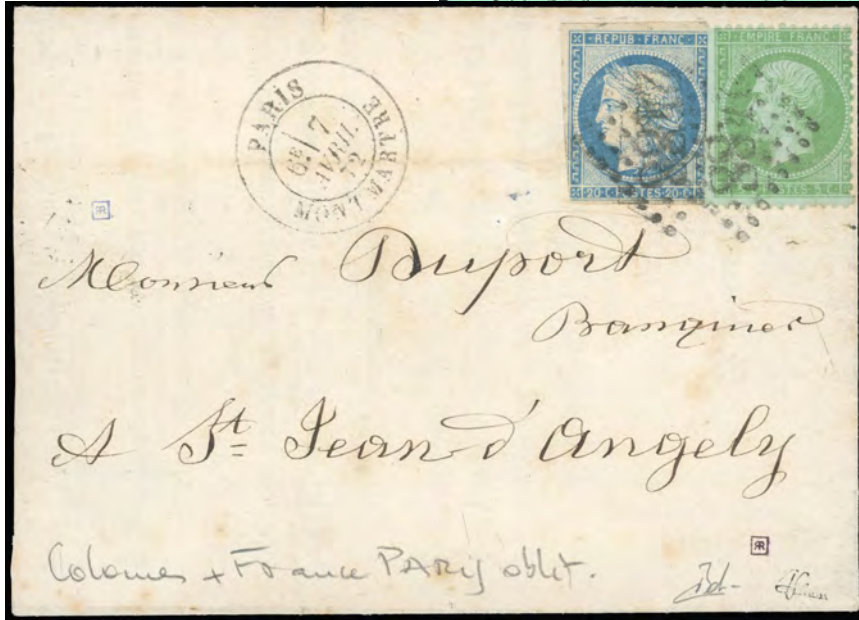 REPUB·FRANC·
20·C·POSTES·20·C·
EMPIRE FRANC·
STES·5·C·
PARIS
6E
7
AVRIL
72
MONTMARTRE
Monsieur Duport
Banquier
A St Jean d'Angely
Colonies + France PARIS oblit.